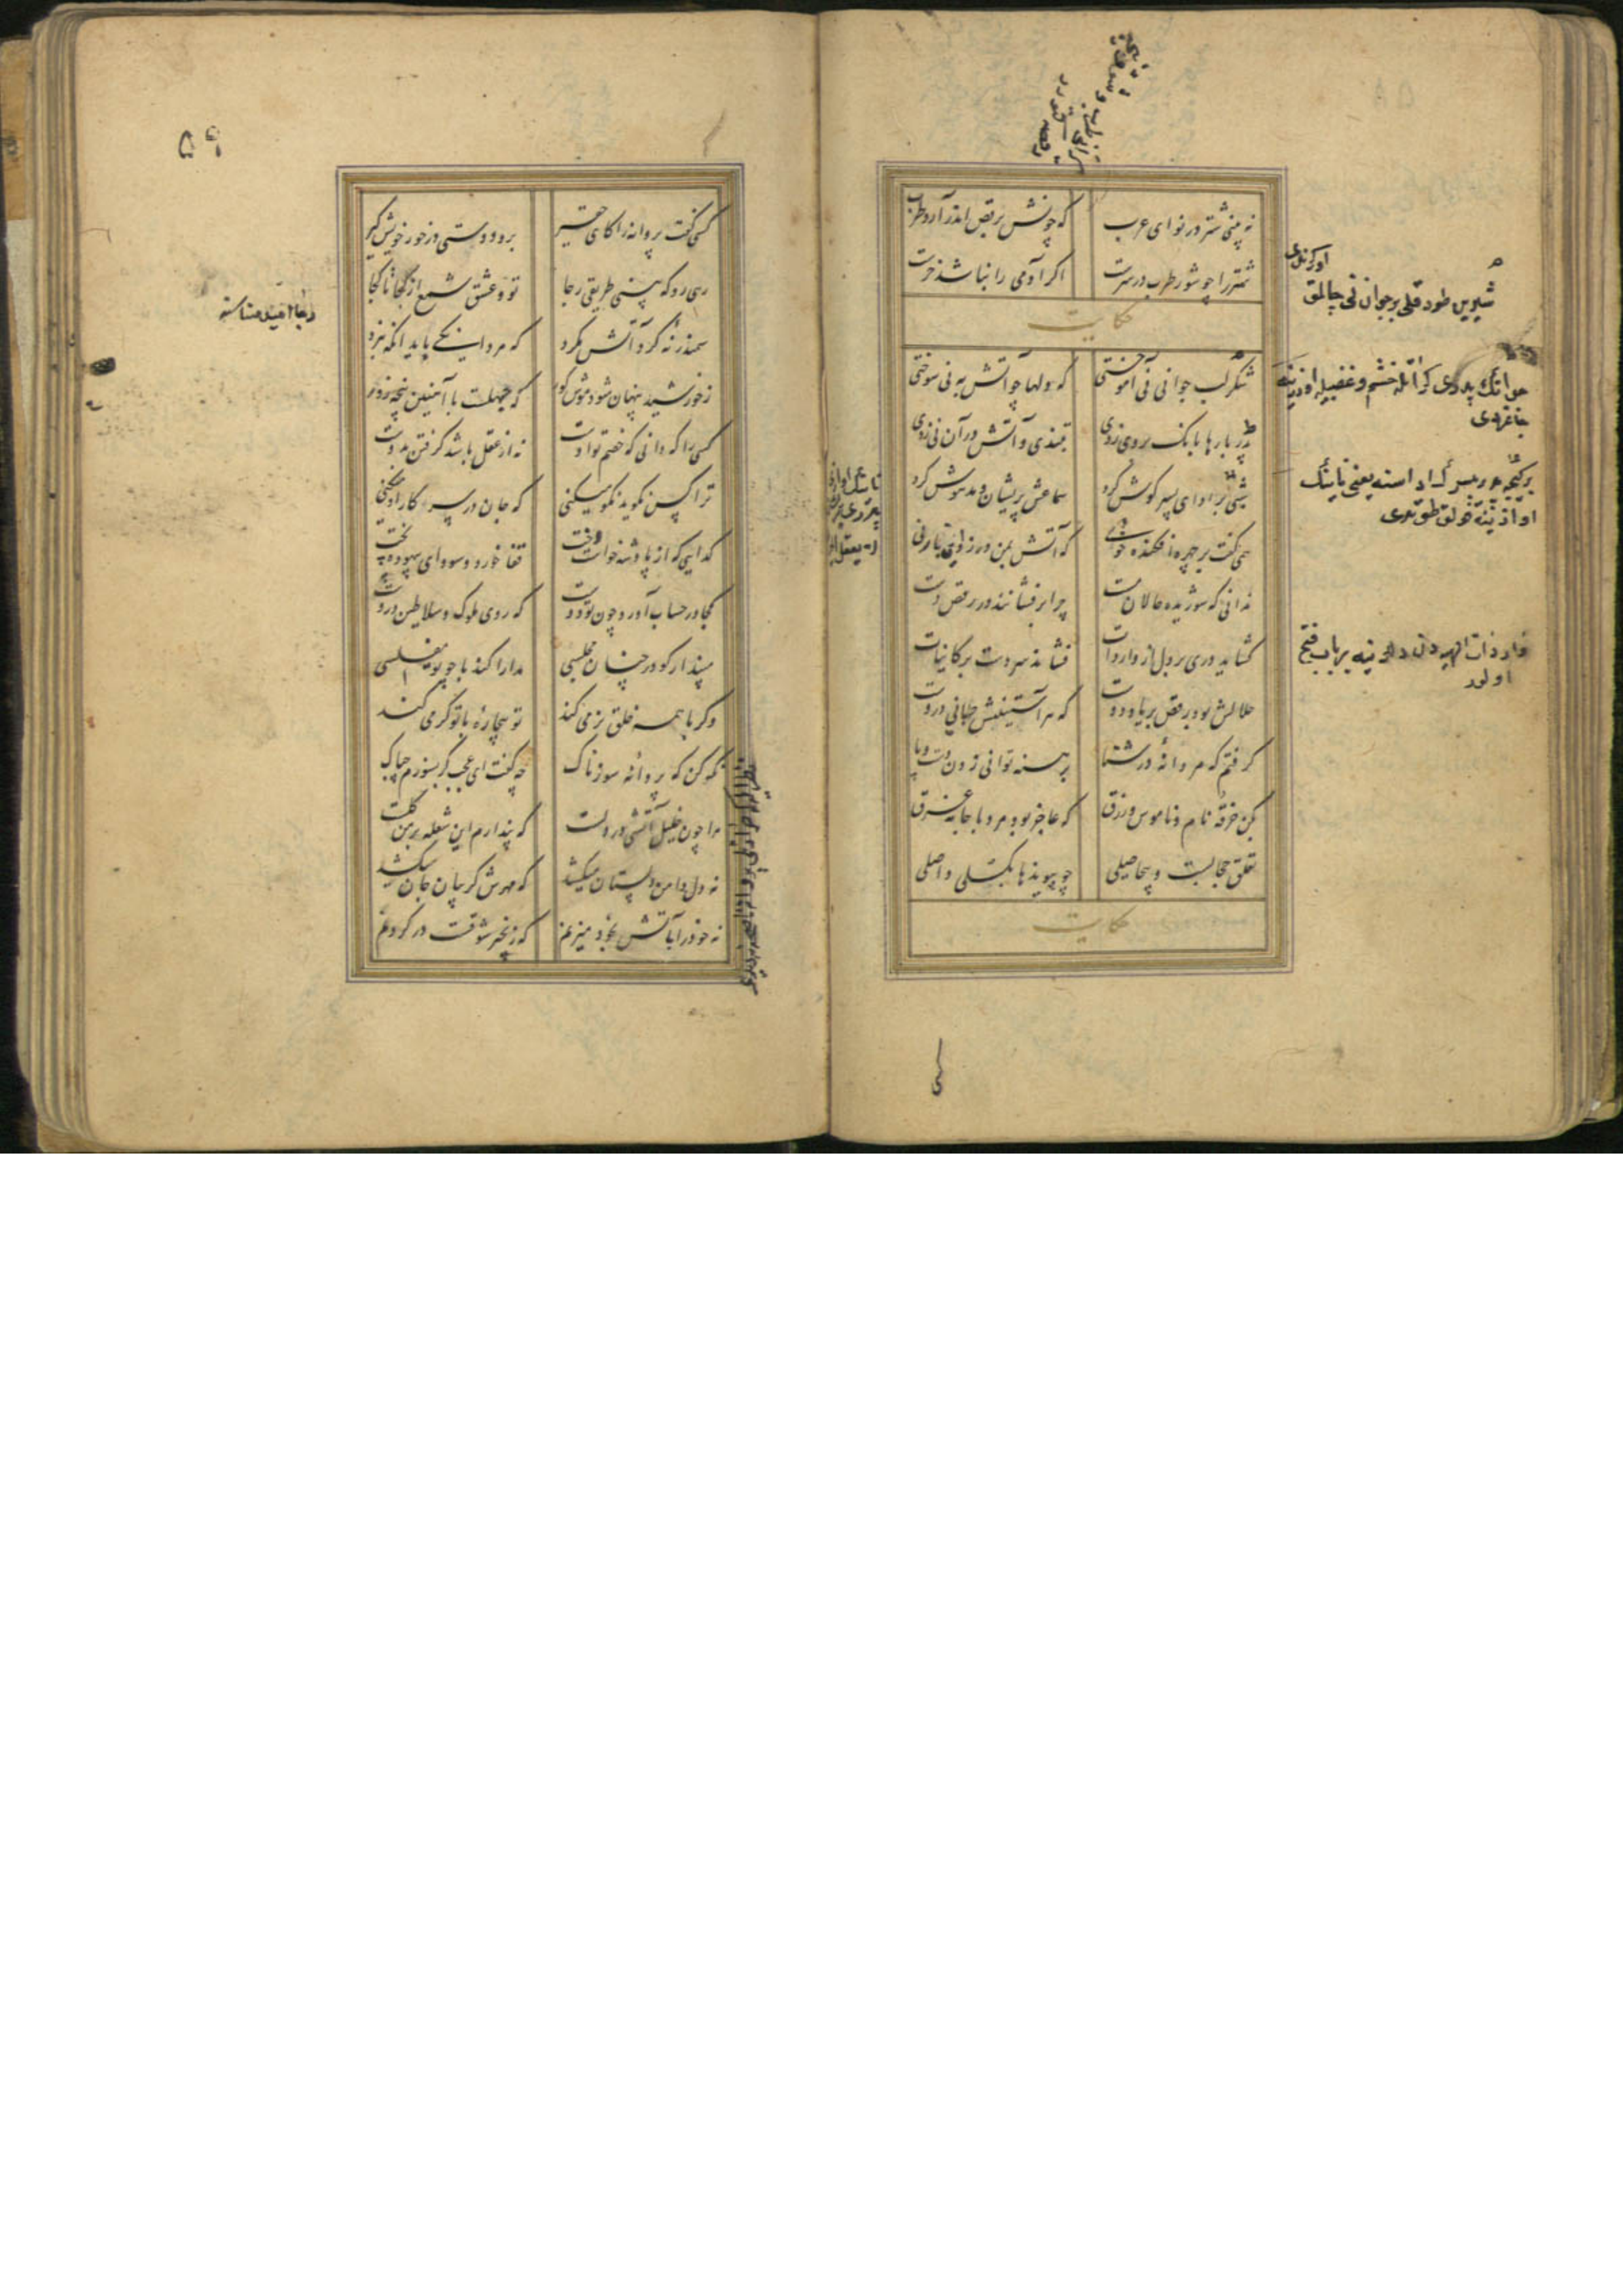 نه بینی شتر در نوای عرب
که چونش برقص اندر آرد طرب
شتر را چو شور طرب در سرست
اگر آدمی را نباشد خرست
حکایت
شکر لب جوانی نی آموختی
که دلها چو آتش به نی سوختی
پدر بارها بانک بر وی زدی
بتندی و آتش در آن نی زدی
شبی بر ادای پسر کوش کرد
سماعش پریشان و مدهوش کرد
همی کفت بر چهره افکنده خوی
که آتش بمن در زد این بار نی
ندانی که شوریده حالان مست
چرا برفشانند در رقص دست
کشاید دری بر دل از واردات
فشاند سر دست بر کاینات
حلالش بود رقص بر یاد دوست
که هر آستینیش جانی دروست
کرفتم که مردانهٔ در شنا
برهنه توانی زدن دست و پا
بکن خرقهٔ نام و ناموس و زرق
که عاجز بود مرد با جامه غرق
تعلق حجابست و بیحاصلی
چو پیوندها بکسلی واصلی
حکایت
شیرین طوداقلی بر جوان نی چالمق
اوکرندی
وارداتِ الهیه دن دل اوزرینه بر باب فتح
اولور
۵۹
کسی کفت پروانه را کای حقیر
برو دوستی در خور خویش کیر
رهی رو که بینی طریق رجا
تو و عشق شمع از کجا تا کجا
سمندر نهٔ کرد آتش مکرد
که مردانکی باید انکه نبرد
ز خورشید پنهان شود موش کور
که جهلست با آهنین پنجه زور
کسی را که دانی که خصم تو اوست
نه از عقل باشد کرفتن بدوست
ترا کس نکوید نکو میکنی
که جان در سر کار او میکنی
کدایی که از پادشه خواست دخت
قفا خورد و سودای بیهوده پخت
کجا در حساب آورد چون تو دوست
که روی ملوک و سلاطین دروست
مپندار کو در چنان مجلسی
مدارا کند با چو تو مفلسی
وکر با همه خلق نرمی کند
تو بیچارهٔ با تو کرمی کند
نکه کن که پروانهٔ سوزناک
چه کفت ای عجب کر بسوزم چه باک
مرا چون خلیل آتشی در دلست
که پندارم این شعله بر من کلست
نه دل دامن دلستان میکشد
که مهرش کریبان جان میکشد
نه خود را بآتش بخود میزنم
که زنجیر شوقست در کردنم